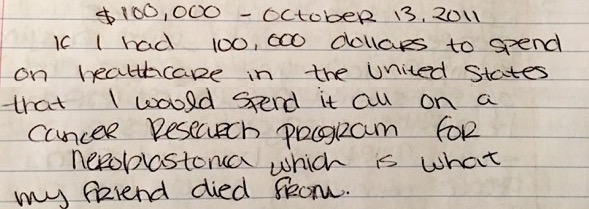 $100,000 - October 13, 2011
If I had 100,000 dollars to spend
on healthcare in the United States
that I would spend it all on a
cancer research program for
neroblastoma which is what
my friend died from.